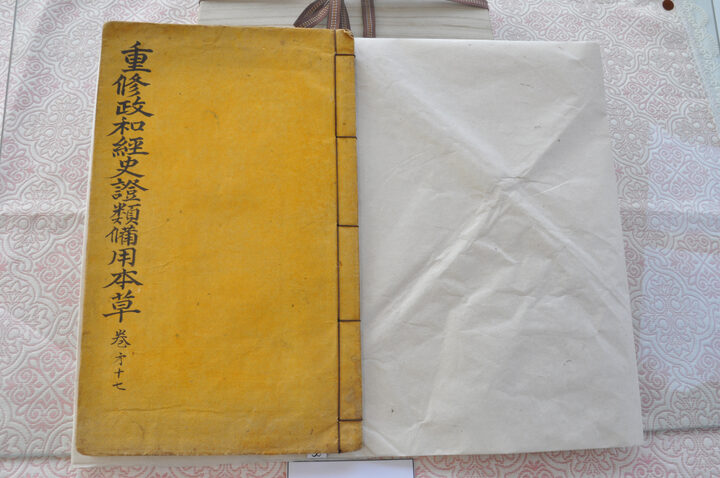 重修政和經史證類備用本草
卷才十七